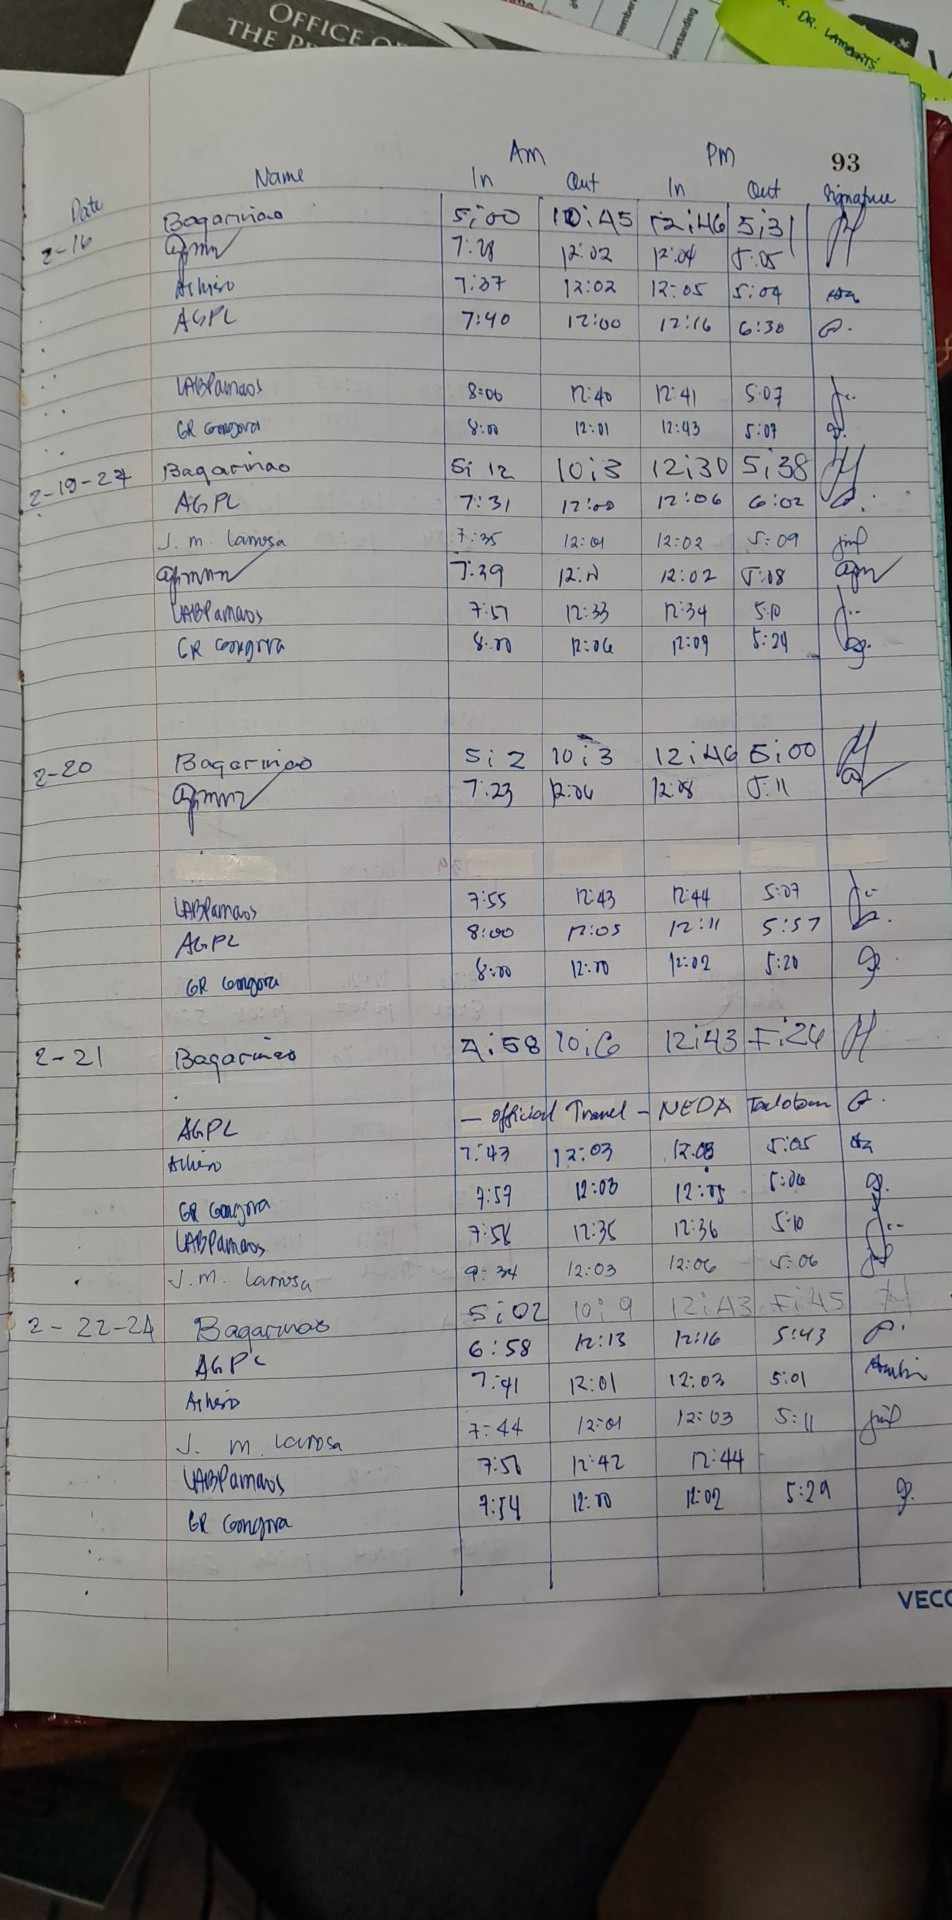 OFFICE O
THE P
DR. LAMBERTS'
AM PM 93
Date Name In Out In Out Signature
2-16 Bagarinao 5:00 10:45 12:46 5:31
7:28 12:02 12:04 5:05
7:37 12:02 12:05 5:04
AGPL 7:40 12:00 12:16 6:30
LABPamaos 8:06 12:40 12:41 5:07
GR Gongora 8:00 12:01 12:43 5:07
2-19-24 Bagarinao 5:12 10:3 12:30 5:38
AGPL 7:31 12:00 12:06 6:02
J. M. Larrosa 7:35 12:01 12:02 5:09
7:39 12:02 5:08
LABPamaos 7:51 12:33 12:34 5:10
GR Gongora 8:00 12:06 12:09 5:24
2-20 Bagarinao 5:2 10:3 12:46 5:00
7:23 12:06 12:08 5:11
LABPamaos 7:55 12:43 12:44 5:07
AGPL 8:00 12:05 12:11 5:57
GR Gongora 8:00 12:00 12:02 5:20
2-21 Bagarinao 4:58 10:6 12:43 5:24
AGPL — Official Travel - NEDA Tacloban
7:43 12:03 12:05 5:05
GR Gongora 7:57 12:03 12:05 5:06
LABPamaos 7:56 12:35 12:36 5:10
J. M. Larrosa 9:34 12:03 12:06 5:06
2-22-24 Bagarinao 5:02 10:9 12:43 5:45
AGPL 6:58 12:13 12:16 5:43
7:41 12:01 12:03 5:01
J. M. Larrosa 7:44 12:01 12:03 5:11
LABPamaos 7:56 12:42 12:44
GR Gongora 7:54 12:00 12:02 5:29
VECO